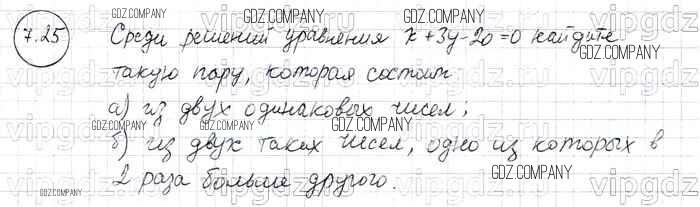 7.25 Среди решений уравнения x+3y-20=0 найдите
такую пару, которая состоит
а) из двух одинаковых чисел;
б) из двух таких чисел, одно из которых в
2 раза больше другого.
GDZ.COMPANY
GDZ.COMPANY
GDZ.COMPANY
GDZ.COMPANY
GDZ.COMPANY
GDZ.COMPANY
GDZ.COMPANY
GDZ.COMPANY
vipgdz
vipgdz
vipgdz
vipgdz